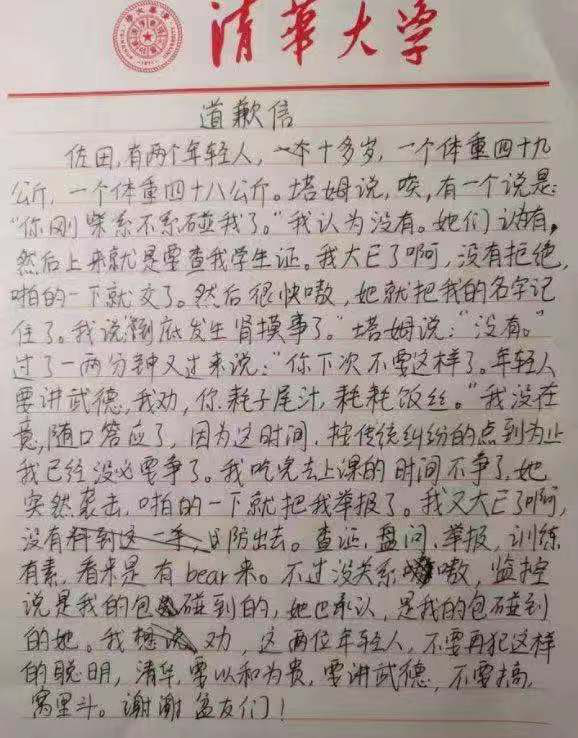 清華大学
道歉信
佐田,有两个年轻人,一个十多岁,一个体重四十九
公斤,一个体重四十八公斤。塔姆说,唉,有一个说是:
“你刚柴系不系碰我了。”我认为没有。她们认有,
然后上来就是要查我学生证。我大E了啊,没有拒绝,
啪的一下就交了。然后很快嗷,她就把我的名字记
住了。我说到底发生肾摸事了。”塔姆说:“没有。”
过了一两分钟又过来说:“你下次不要这样了。年轻人
要讲武德,我劝,你耗子尾汁,耗耗饭丝。”我没在
意,随口答应了,因为这时间,按传统纠纷的点到为止
我已经没必要争了。我吃完去上课的时间不争了,她
突然袭击,啪的一下就把我举报了。我又大E了啊,
没有料到这一手,防出去。查证,盘问,举报,训练
有素,看来是有bear来。不过没关系嗷,监控
说是我的包碰到的,她也承认,是我的包碰到
的她。我想说劝,这两位年轻人,不要再犯这样
的聪明,清华,要以和为贵,要讲武德,不要搞,
窝里斗。谢谢盆友们!